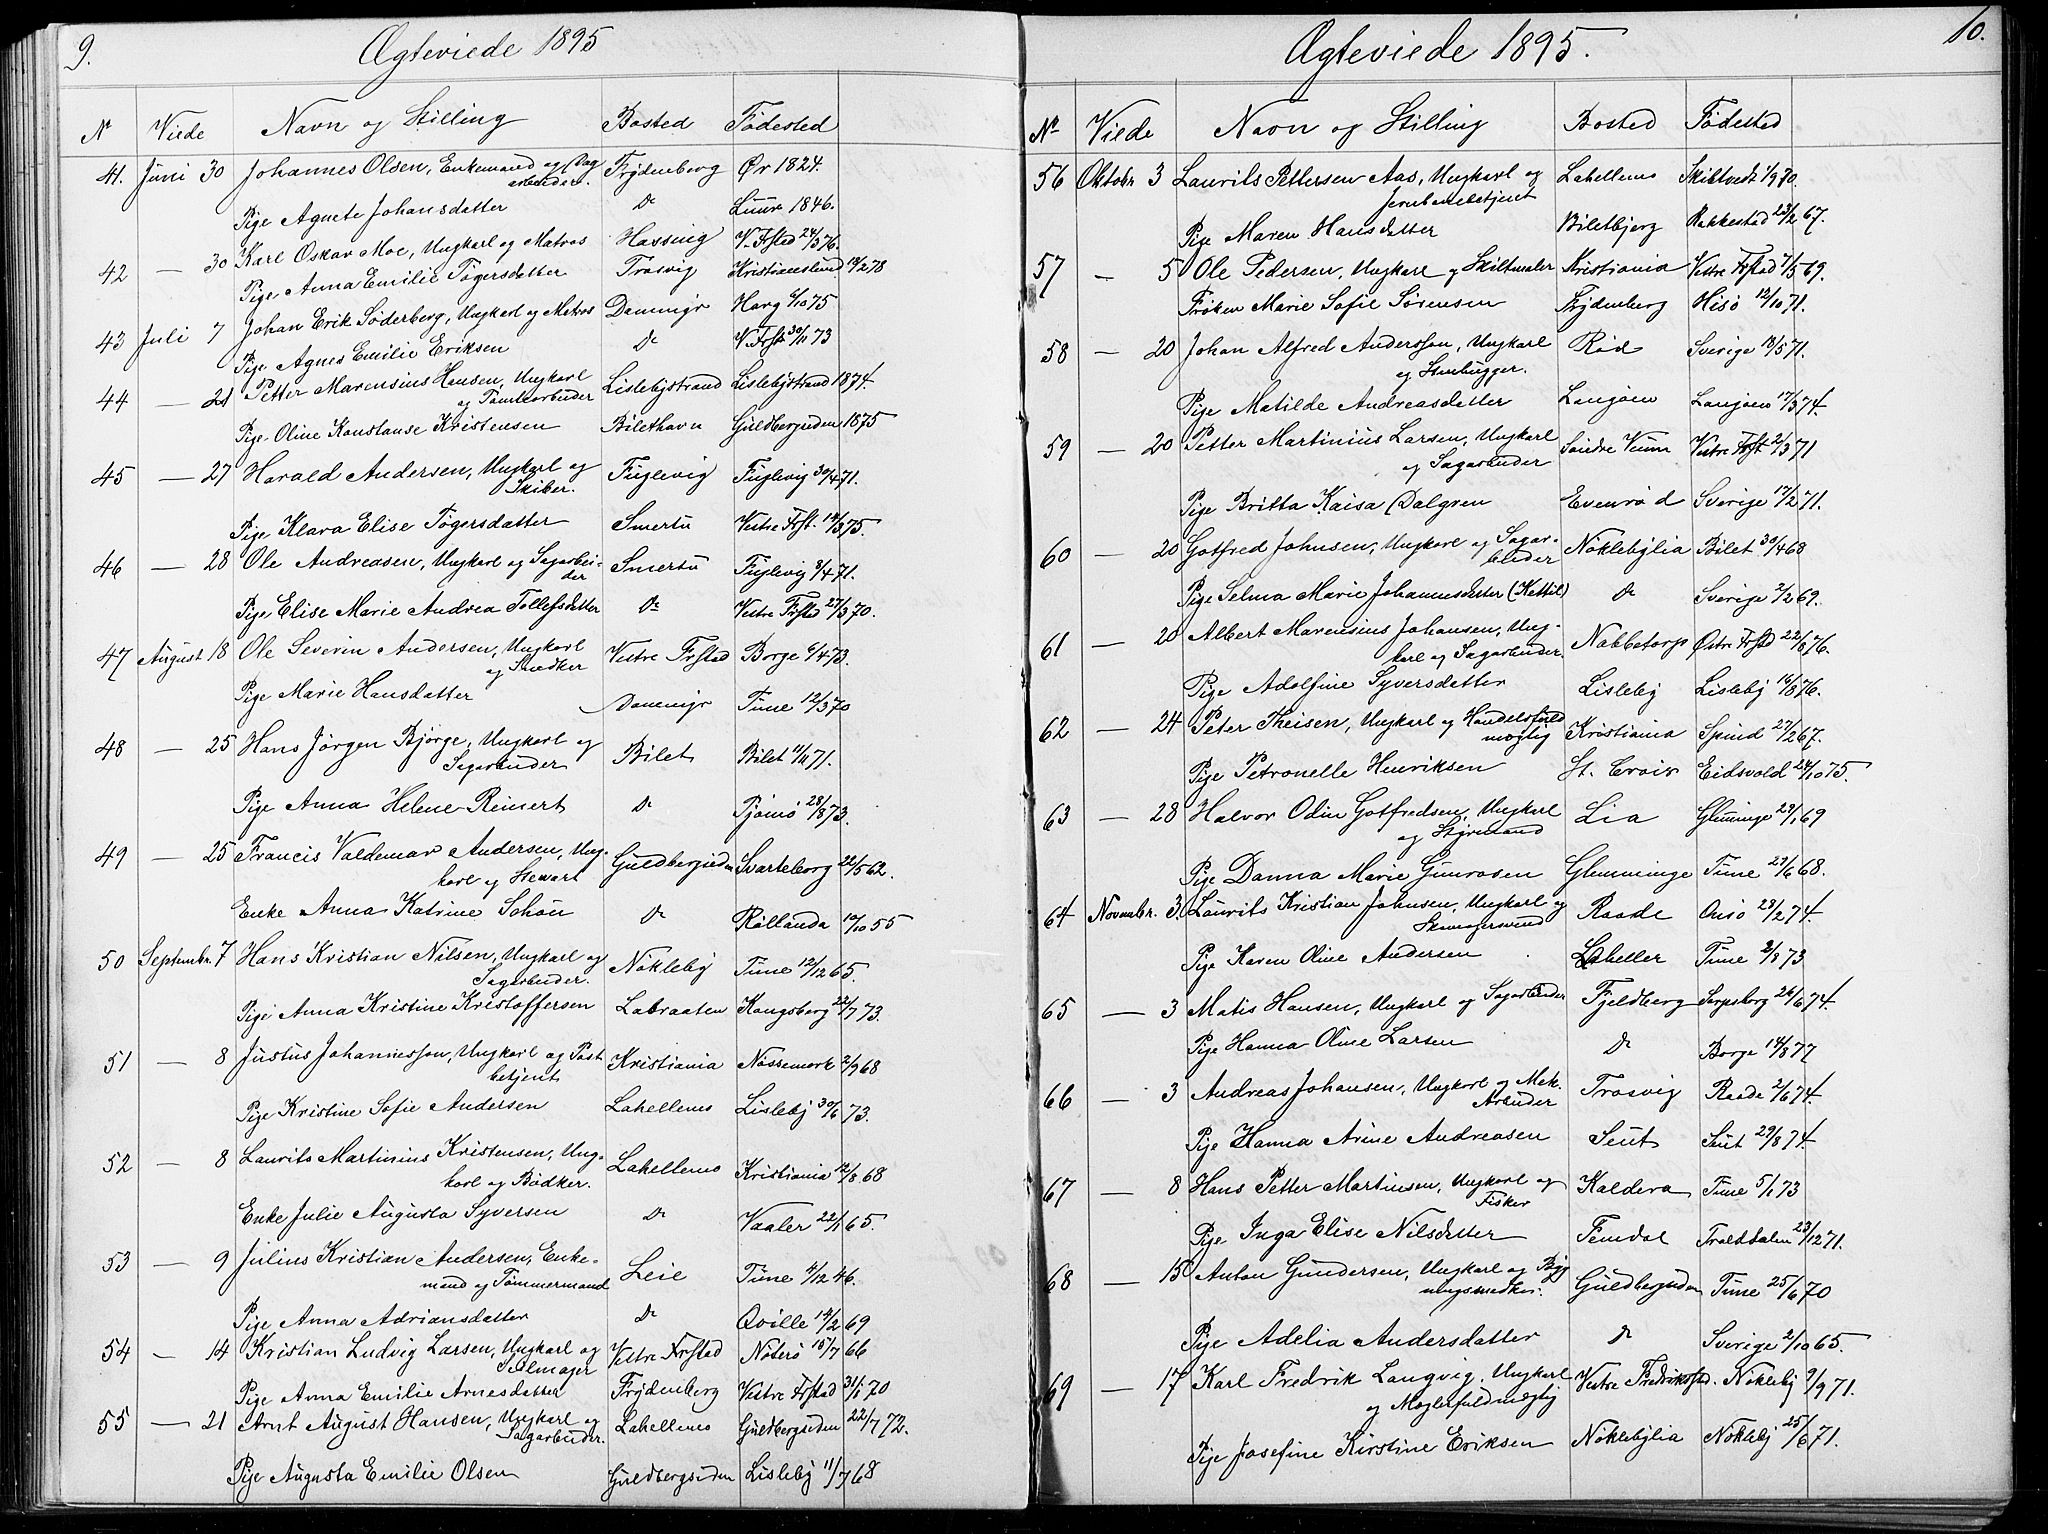 9.
Ægteviede 1895
Nr Viede Navn og Stilling Bosted Fødested
41. Juni 30 Johannes Olsen, Enkemand og Dag- Frydenberg Ør 1824.
arbeider.
Pige Agnete Johansdatter Do 1846.
42 — 30 Karl Oskar Moe, Ungkarl og Matros Hassing V. Frstad 24/3 76.
Pige Anna Emilie Tøgersdatter Trosvig Kristianslund 78
43 Juli 7 Johan Erik Søderberg, Ungkarl og Matros Dammyr Harg 6/10 75
Pige Agnes Emilie Eriksen Do V. Frst 30/11 73
44 — 21 Petter Marensius Hansen, Ungkarl Lislebystrand Lislebystrand 1874.
og Tomtearbeider
Pige Oline Konstanse Kristensen Bilethavn Guldbergsiden 1875
45 — 27 Harald Andersen, Ungkarl og Fuglevig Fuglevig 30/4 71.
Skiber.
Pige Klara Elise Tøgersdatter Smertu Vestre Frst. 14/3 75.
46 — 28 Ole Andreasen, Ungkarl og Sagarbei- Smertu Fuglevig 8/4 71.
der
Pige Elise Marie Andrea Tollefsdatter Do Vestre Frstad 27/3 70.
47 August 18 Ole Severin Andersen, Ungkarl Vestre Frstad Borge 6/4 73.
og Snedker
Pige Marie Hansdatter Dammyr Tune 12/3 70
48 — 25 Hans Jørgen Bjørge, Ungkarl og Bilet Bilet 11/11 71.
Sagarbeider
Pige Anna Helene Reinert Do Tjømø 28/8 73.
49 — 25 Francis Valdemar Andersen, Ung- Guldbergsiden Svarteborg 22/5 62.
karl og Stewart
Enke Anna Katrine Schøn Do Røllanda 10/10 55
50 Septembr. 7 Hans Kristian Nilsen, Ungkarl og Nøkleby Tune 12/12 65.
Sagarbeider.
Pige Anna Kristine Kristoffersen Labraaten Kongsberg 22/7 73.
51 — 8 Justus Johannesson, Ungkarl og Post- Kristiania Nøssemark 2/9 68
betjent
Pige Kristine Sofie Andersen Lahellens Lisleby 30/6 73.
52 — 8 Laurits Martinius Kristensen, Ung- Lahellens Kristiania 12/8 68
karl og Bødker.
Enke Julie Augusta Syversen Do Vaaler 22/1 65.
53 — 9 Julius Kristian Andersen, Enke- Leie Tune 4/12 46.
mand og Tømmermand
Pige Anna Adriansdatter Do Qville 14/2 69
54 — 14 Kristian Ludvig Larsen, Ungkarl og Vestre Frstad Nøterø 10/7 66
Seilmager
Pige Anna Emilie Arnesdatter Frydenberg Vestre Frstad 31/1 70
55 — 21 Arnt August Hansen, Ungkarl og Lahellens Guldbergsiden 22/7 72.
Sagarbeider.
Pige Augusta Emilie Olsen Guldbergsiden Lisleby 11/7 68
10.
Ægteviede 1895.
Nr Viede Navn og Stilling Bosted Fødested
56 Oktobr 3 Laurits Pettersen Aas, Ungkarl og Lahellens Skibtvedt 1/9 70.
Jernbanebetjent
Pige Maren Hansdatter Biletbjerg Rakkestad 23/2 67.
57 — 5 Ole Pedersen, Ungkarl og Skiltmaler Kristiania Vestre Frstad 7/5 69.
Frøken Marie Sofie Sørensen Frydenberg Hisø 12/10 71.
58 — 20 Johan Alfred Andersson, Ungkarl Rød Sverige 18/5 71.
og Stenhugger.
Pige Matilde Andreasdatter Langøen Langøen 17/3 74.
59 — 20 Petter Martinius Larsen, Ungkarl Søndre Veum Vestre Frst 2/3 71
og Sagarbeider
Pige Britta Kaisa Dalgren Evenrød Sverige 17/2 71.
60 — 20 Gotfred Johnsen, Ungkarl og Sagar- Nøklebylia Bilet 30/4 68
beider
Pige Selma Marie Johannesdatter (Kettil) Do Sverige 2/2 69.
61 — 20 Albert Marensius Johansen, Ung- Nabbetorp Østre Frstd 22/8 76.
karl og Sagarbeider.
Pige Adolfine Syversdatter Lisleby Lisleby 16/8 76.
62 — 24 Peter Theisen, Ungkarl og Handelsfuld- Kristiania Spind 27/2 67.
mægtig
Pige Petronelle Henriksen St. Croix Eidsvold 24/10 75.
63 — 28 Halvor Odin Gotfredsen, Ungkarl Lia Glemminge 29/1 69
og Styrmand
Pige Danna Marie Gunrosen Glemminge Tune 29/6 68.
64 Novmbr. 3 Laurits Kristian Johnsen, Ungkarl og Raade Onsø 28/2 74.
Skomagersvend
Pige Karen Oline Andersen Laheller Tune 2/8 73
65 — 3 Matis Hansen, Ungkarl og Sagarbeider Fjeldberg Sarpsborg 26/6 74.
Pige Hanna Oline Larsen Do Borge 18/8 77
66 — 3 Andreas Johansen, Ungkarl og Mek. Trosvig Raade 2/6 74.
Arbeider
Pige Hanna Arine Andreasen Seut Seut 29/8 74.
67 — 8 Hans Petter Martinsen, Ungkarl og Kaldera Tune 5/1 73
Fisker
Pige Inga Elise Nilsdatter Femdal Traldalen 23/12 71.
68 — 15 Anton Gundersen, Ungkarl og Byg- Guldbergsiden Tune 25/6 70
ningssnedker.
Pige Adelia Andersdatter Do Sverige 2/10 65.
69 — 17 Karl Fredrik Langvig, Ungkarl Vestre Fredrikstad. Nøkleby 9/9 71.
og Mæglerfuldmægtig
Pige Josefine Kirstine Eriksen Nøklebylia Nøkleby 25/6 71.